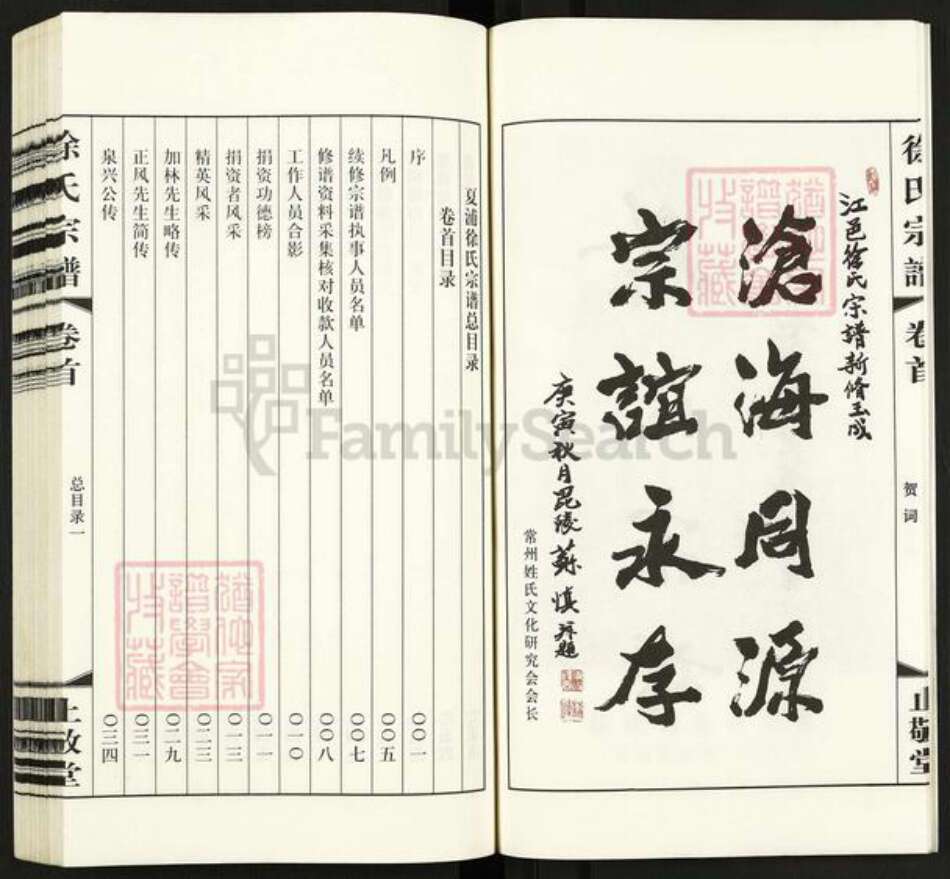 徐氏宗譜
卷首
贺词
止敬堂
江邑徐氏宗譜新修玉成
滄海同源
宗誼永存
庚寅秋月毘陵蘇慎敬題
常州姓氏文化研究会会长
夏浦徐氏宗谱总目录
卷首目录
序 〇〇一
凡例 〇〇五
续修宗谱执事人员名单 〇〇七
修谱资料采集核对收款人员名单 〇〇八
工作人员合影 〇一〇
捐资功德榜 〇一一
捐资者风采 〇一三
精英风采 〇二三
加林先生略传 〇二九
正风先生简传 〇三一
泉兴公传 〇三四
徐氏宗譜
卷首
总目录一
止敬堂
譜學會
收藏
FamilySearch